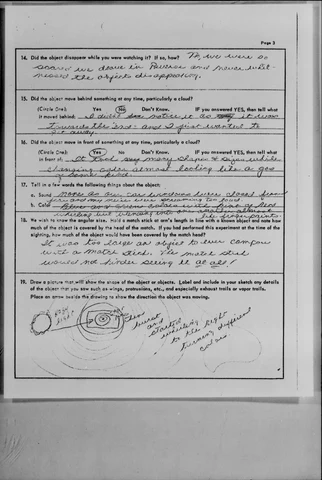 Page 3
14. Did the object disappear while you were watching it? If so, how? No, we were so
scared we drove in Reverse and never wit-
nessed the object disappearing.
15. Did the object move behind something at any time, particularly a cloud?
(Circle One): Yes No Don't Know. IF you answered YES, then tell what
it moved behind: I didn't notice it as it was
towards the end and I just wanted to
get away
16. Did the object move in front of something at any time, particularly a cloud?
(Circle One): Yes No Don't Know. IF you answered YES, then tell what
in front of: It took many shapes & sizes while
changing color almost looking like a gas
of some kind.
17. Tell in a few words the following things about the object:
a. Sound None as our car windows were closed
and my were screaming too loud
b. Color Blue and Green colors
whirling but into one another almost
like
18. We wish to know the angular size. Hold a match stick at arm's length in line with a known object and note how
much of the object is covered by the head of the match. If you had performed this experiment at the time of the
sighting, how much of the object would have been covered by the match head?
It was too large an object to even compare
with a match stick. The match stick
would not hinder seeing it at all!
19. Draw a picture that will show the shape of the object or objects. Label and include in your sketch any details
of the object that you saw such as wings, protrusions, etc., and especially exhaust trails or vapor trails.
Place an arrow beside the drawing to show the direction the object was moving.
then
burst
and
started
whirling
to the Right
turning different
colors